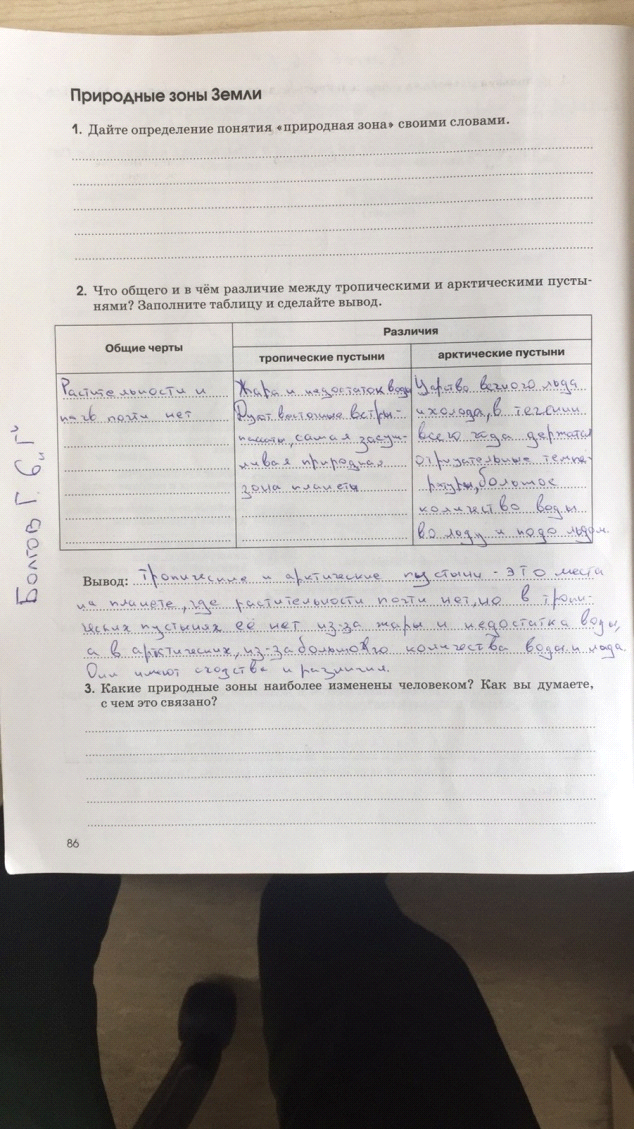 Природные зоны Земли
1. Дайте определение понятия «природная зона» своими словами.
2. Что общего и в чём различие между тропическими и арктическими пусты-
нями? Заполните таблицу и сделайте вывод.
Общие черты
Различия
тропические пустыни
арктические пустыни
Растительности и
почв почти нет
Жара и недостаток воды
Дуют восточные ветры-
пассаты, самая засуш-
ливая природная
зона планеты
Царство вечного льда
и холода, в течении
всего года держатся
отрицательные темпе-
ратуры, большое
количество воды
во льду и подо льдом.
Вывод: тропические и арктические пустыни - это места
на планете, где растительности почти нет, но в тропи-
ческих пустынях её нет из-за жары и недостатка воды,
а в арктических, из-за большого количества воды и льда.
Они имеют сходства и различия.
3. Какие природные зоны наиболее изменены человеком? Как вы думаете,
с чем это связано?
86
Болтов Г. 6 „Г"